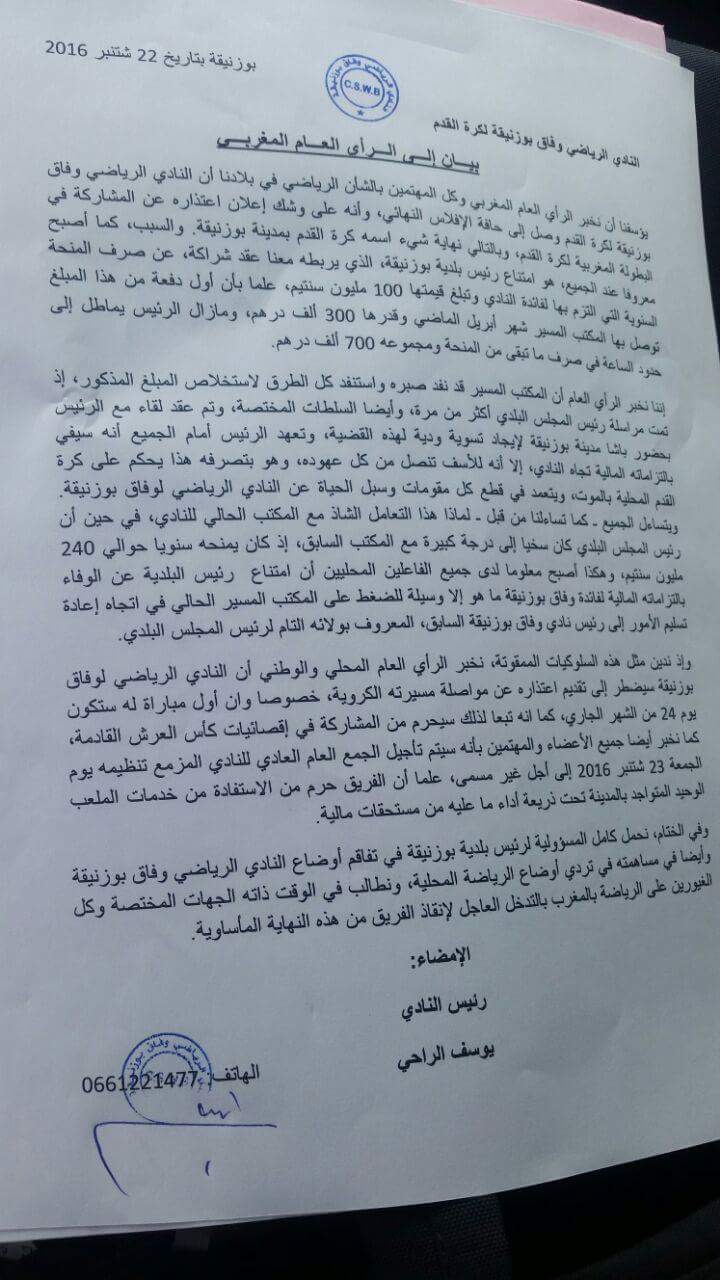 بوزنيقة بتاريخ 22 شتنبر 2016
C.S.W.B
النادي الرياضي وفاق بوزنيقة لكرة القدم
بيـان إلـى الـرأي العـام المغربـي
يؤسفنا أن نخبر الرأي العام المغربي وكل المهتمين بالشأن الرياضي في بلادنا أن النادي الرياضي وفاق
بوزنيقة لكرة القدم وصل إلى حافة الإفلاس النهائي، وأنه على وشك إعلان اعتذاره عن المشاركة في
البطولة المغربية لكرة القدم، وبالتالي نهاية شيء اسمه كرة القدم بمدينة بوزنيقة. والسبب، كما أصبح
معروفا عند الجميع، هو امتناع رئيس بلدية بوزنيقة، الذي يربطه معنا عقد شراكة، عن صرف المنحة
السنوية التي التزم بها لفائدة النادي وتبلغ قيمتها 100 مليون سنتيم، علما بأن أول دفعة من هذا المبلغ
توصل بها المكتب المسير شهر أبريل الماضي وقدرها 300 ألف درهم، ومازال الرئيس يماطل إلى
حدود الساعة في صرف ما تبقى من المنحة ومجموعه 700 ألف درهم.
إننا نخبر الرأي العام أن المكتب المسير قد نفد صبره واستنفد كل الطرق لاستخلاص المبلغ المذكور، إذ
تمت مراسلة رئيس المجلس البلدي أكثر من مرة، وأيضا السلطات المختصة، وتم عقد لقاء مع الرئيس
بحضور باشا مدينة بوزنيقة لإيجاد تسوية ودية لهذه القضية، وتعهد الرئيس أمام الجميع أنه سيفي
بالتزاماته المالية تجاه النادي، إلا أنه للأسف تنصل من كل عهوده، وهو بتصرفه هذا يحكم على كرة
القدم المحلية بالموت، ويتعمد في قطع كل مقومات وسبل الحياة عن النادي الرياضي لوفاق بوزنيقة.
ويتساءل الجميع ـ كما تساءلنا من قبل ـ لماذا هذا التعامل الشاذ مع المكتب الحالي للنادي، في حين أن
رئيس المجلس البلدي كان سخيا إلى درجة كبيرة مع المكتب السابق، إذ كان يمنحه سنويا حوالي 240
مليون سنتيم، وهكذا أصبح معلوما لدى جميع الفاعلين المحليين أن امتناع رئيس البلدية عن الوفاء
بالتزاماته المالية لفائدة وفاق بوزنيقة ما هو إلا وسيلة للضغط على المكتب المسير الحالي في اتجاه إعادة
تسليم الأمور إلى رئيس نادي وفاق بوزنيقة السابق، المعروف بولائه التام لرئيس المجلس البلدي.
وإذ ندين مثل هذه السلوكيات الممقوتة، نخبر الرأي العام المحلي والوطني أن النادي الرياضي لوفاق
بوزنيقة سيضطر إلى تقديم اعتذاره عن مواصلة مسيرته الكروية، خصوصا وان أول مباراة له ستكون
يوم 24 من الشهر الجاري، كما انه تبعا لذلك سيحرم من المشاركة في إقصائيات كأس العرش القادمة،
كما نخبر أيضا جميع الأعضاء والمهتمين بأنه سيتم تأجيل الجمع العام العادي للنادي المزمع تنظيمه يوم
الجمعة 23 شتنبر 2016 إلى أجل غير مسمى، علما أن الفريق حرم من الاستفادة من خدمات الملعب
الوحيد المتواجد بالمدينة تحت ذريعة أداء ما عليه من مستحقات مالية.
وفي الختام، نحمل كامل المسؤولية لرئيس بلدية بوزنيقة في تفاقم أوضاع النادي الرياضي وفاق بوزنيقة
وأيضا في مساهمته في تردي أوضاع الرياضة المحلية، ونطالب في الوقت ذاته الجهات المختصة وكل
الغيورين على الرياضة بالمغرب بالتدخل العاجل لإنقاذ الفريق من هذه النهاية المأساوية.
الإمضاء:
رئيس النادي
يوسف الراحي
الهاتف: 0661221477